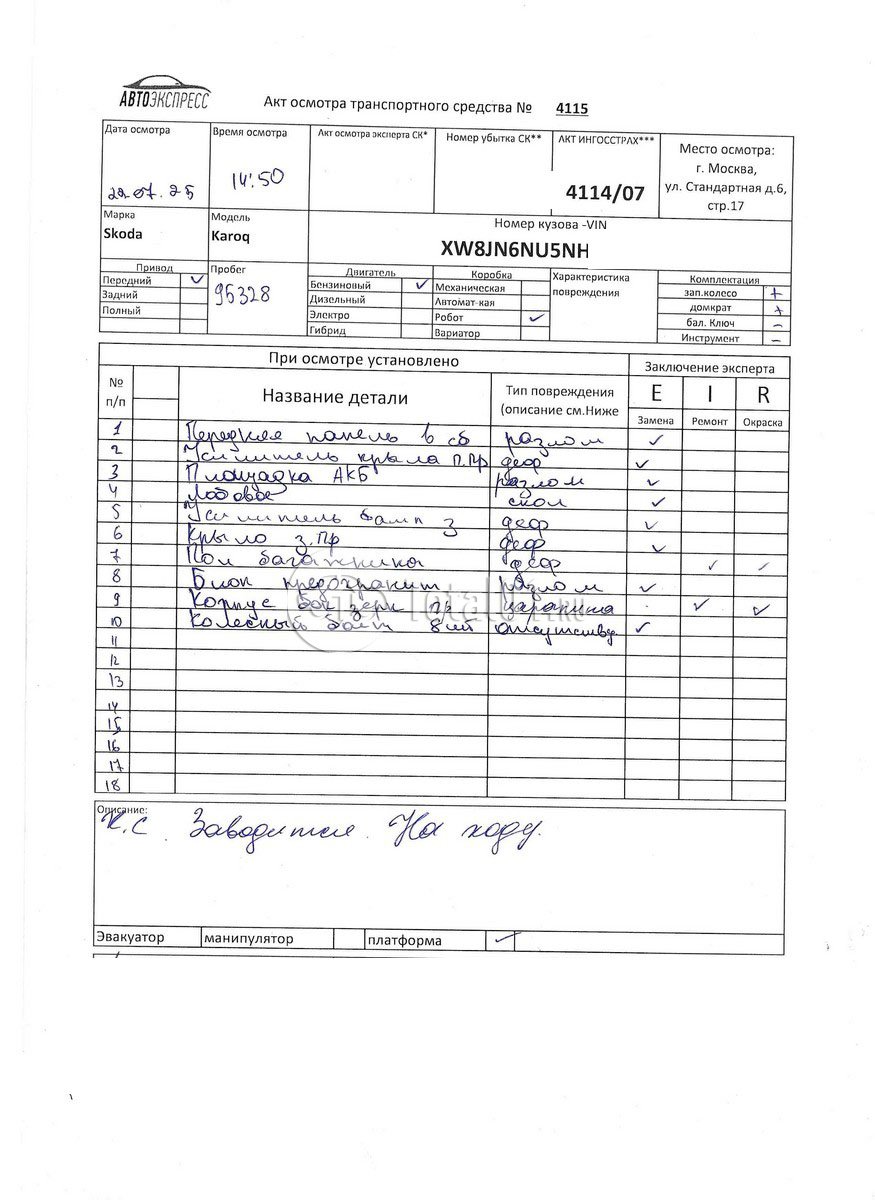 АВТОЭКСПРЕСС
Акт осмотра транспортного средства № 4115
Дата осмотра
22.07.25
Время осмотра
14:50
Акт осмотра эксперта СК*
Номер убытка СК**
АКТ ИНГОССТРАХ***
4114/07
Место осмотра:
г. Москва,
ул. Стандартная д.6,
стр.17
Марка
Skoda
Модель
Karoq
Номер кузова -VIN
XW8JN6NU5NH
Привод
Передний ✓
Задний
Полный
Пробег
95328
Двигатель
Бензиновый ✓
Дизельный
Электро
Гибрид
Коробка
Механическая
Автомат-кая
Робот ✓
Вариатор
Характеристика
повреждения
Комплектация
зап.колесо +
домкрат +
бал. Ключ –
Инструмент –
При осмотре установлено
Заключение эксперта
№
п/п
Название детали
Тип повреждения
(описание см.Ниже
E I R
Замена Ремонт Окраска
1 Передняя панель в сб разлом ✓
2 Усилитель крыла п.пр деф ✓
3 Площадка АКБ разлом ✓
4 Лобовое скол ✓
5 Усилитель бамп з деф ✓
6 Крыло з.пр деф ✓
7 Пол багажника деф ✓ ✓
8 Блок предохранит разлом ✓
9 Корпус бок зерк пр царапина ✓ ✓
10 Колесный болт 8шт отсутствуд ✓
11
12
13
14
15
16
17
18
TotalOt.RU
Описание:
Н.С Заводится. На ходу.
Эвакуатор манипулятор платформа ✓